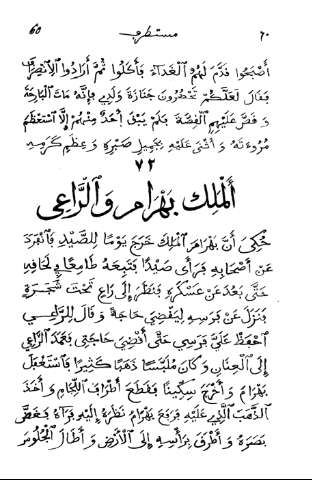 60 مستظرف ٦٠
أَصْبَحُوا قَدَّمَ لَهُمُ ٱلْغَدَاءَ فَأَكَلُوا ثُمَّ أَرَادُوا ٱلِٱنْصِرَافَ
فَقَالَ لَعَلَّكُمْ تَحْضُرُونَ جَنَازَةَ وَلَدِي فَإِنَّهُ مَاتَ ٱلْبَارِحَةَ
وَقَصَّ عَلَيْهِمِ ٱلْقِصَّةَ فَلَمْ يَبْقَ أَحَدٌ مِنْهُمْ إِلَّا ٱسْتَعْظَمَ
مُرُوءَتَهُ وَأَثْنَى عَلَيْهِ بِجَمِيلِ صَبْرِهِ وَعِظَمِ كَرَمِهِ
٧٢
ٱلْمَلِكُ بَهْرَامُ وَٱلرَّاعِي
حُكِيَ أَنَّ بَهْرَامَ ٱلْمَلِكَ خَرَجَ يَوْمًا لِلصَّيْدِ فَٱنْفَرَدَ
عَنْ أَصْحَابِهِ فَرَأَى صَيْدًا فَتَبِعَهُ طَامِعًا فِي لَحَاقِهِ
حَتَّى بَعُدَ عَنْ عَسْكَرِهِ فَنَظَرَ إِلَى رَاعٍ تَحْتَ شَجَرَةٍ
فَنَزَلَ عَنْ فَرَسِهِ لِيَقْضِيَ حَاجَةً وَقَالَ لِلرَّاعِي
ٱحْفَظْ عَلَيَّ فَرَسِي حَتَّى أَقْضِيَ حَاجَتِي فَعَمَدَ ٱلرَّاعِي
إِلَى ٱلْعِنَانِ وَكَانَ مُلَبَّسًا ذَهَبًا كَثِيرًا فَٱسْتَغْفَلَ
بَهْرَامَ وَأَخْرَجَ سِكِّينًا فَقَطَعَ أَطْرَافَ ٱللِّجَامِ وَأَخَذَ
ٱلذَّهَبَ ٱلَّذِي عَلَيْهِ فَرَفَعَ بَهْرَامُ نَظَرَهُ إِلَيْهِ فَرَآهُ فَغَضَّ
بَصَرَهُ وَأَطْرَقَ بِرَأْسِهِ إِلَى ٱلْأَرْضِ وَأَطَالَ ٱلْجُلُوسَ